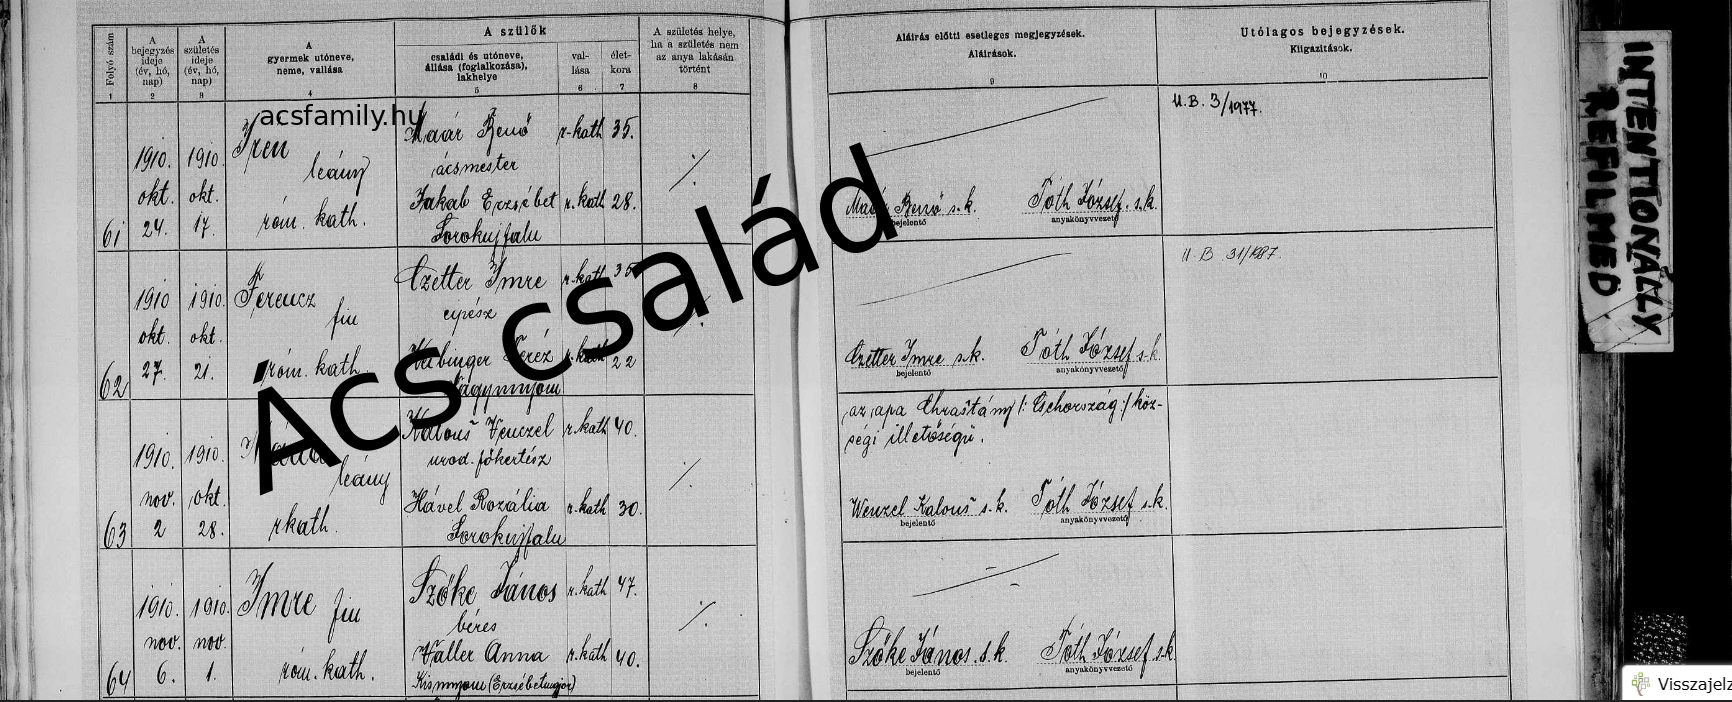 Folyó szám
A bejegyzés ideje (év, hó, nap)
A születés ideje (év, hó, nap)
A gyermek utóneve, neme, vallása
A szülők
családi és utóneve, állása (foglalkozása), lakhelye
val-lása
élet-kora
A születés helye, ha a születés nem az anya lakásán történt
Aláírás előtti esetleges megjegyzések.
Aláírások.
Utólagos bejegyzések.
Kiigazítások.
1 2 3 4 5 6 7 8 9 10
acsfamily.hu
Ács család
61
1910. okt. 24.
1910. okt. 17.
Iren
leány
róm. kath.
Maár Benő r-kath 35.
ácsmester
Jakab Erzsébet r.kath 28.
Sorokujfalu
./.
Maár Benő s.k.
bejelentő
Tóth József. s.k.
anyakönyvvezető
U.B. 3/1977.
62
1910 okt. 27.
1910. okt. 21.
Ferencz
fiu
róm. kath.
Czetter Imre r.kath 35
cipész
Teréz r.kath 22
./.
Czetter Imre s.k.
bejelentő
Tóth József s.k.
anyakönyvvezető
U.B 31/1987.
63
1910. nov. 2
1910. okt. 28.
Mária
leány
rkath.
Kalouš Venczel r.kath 40.
urad. főkertész
Hável Rozália r.kath 30.
Sorokujfalu
./.
az apa Chrastány /: Csehország :/ köz-
ségi illetőségü.
Wenzel Kalouš s.k.
bejelentő
Tóth József s.k.
anyakönyvvezető
64
1910. nov. 6.
1910. nov. 1.
Imre
fiu
róm. kath.
Szőke János r.kath 47.
béres
Valler Anna r.kath 40.
./.
Szőke János. s.k.
bejelentő
Tóth József s.k
anyakönyvvezető
INTENTIONALLY
REFILMED
Visszajelz